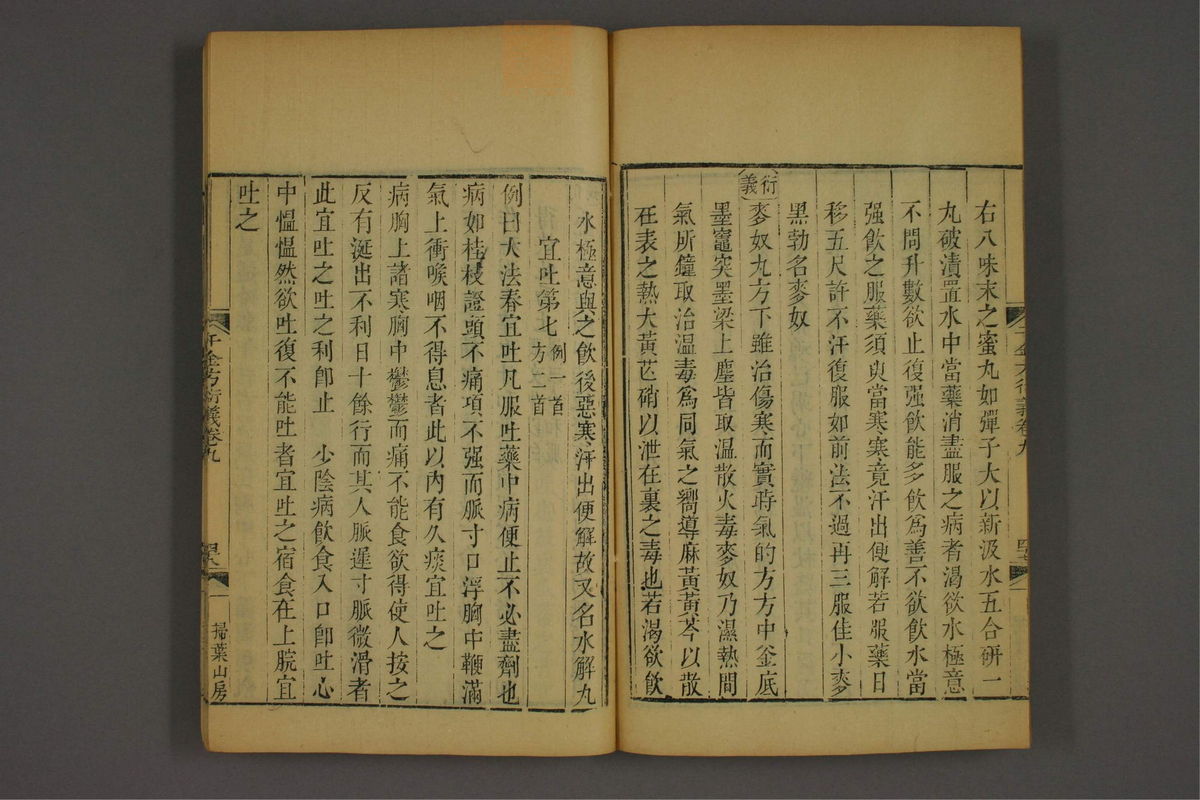 右八味末之蜜丸如彈子大以新汲水五合研一
丸破漬置水中當藥消盡服之病者渴欲水極意
不問升數欲止復强飲能多飲爲善不欲飲水當
强飲之服藥須臾當寒寒竟汗出便解若服藥日
移五尺許不汗復服如前法不過再三服佳小麥
黑勃名麥奴
衍義
麥奴丸方下雖治傷寒而實時氣的方方中釜底
墨竈突墨梁上塵皆取溫散火毒麥奴乃濕熱間
氣所鐘取治溫毒爲同氣之嚮導麻黃黃芩以散
在表之熱大黃芒硝以泄在裏之毒也若渴欲飲
水極意與之飲後惡寒汗出便解故又名水解丸
宜吐第七 例一首 方二首
例曰大法春宜吐凡服吐藥中病便止不必盡劑也
病如桂枝證頭不痛項不强而脈寸口浮胸中鞕滿
氣上衝喉咽不得息者此以內有久痰宜吐之
病胸上諸寒胸中鬱鬱而痛不能食欲得使人按之
反有涎出不利日十餘行而其人脈遲寸脈微滑者
此宜吐之吐之利卽止 少陰病飲食入口卽吐心
中慍慍然欲吐復不能吐者宜吐之宿食在上脘宜
吐之
千金方衍義卷九
掃葉山房